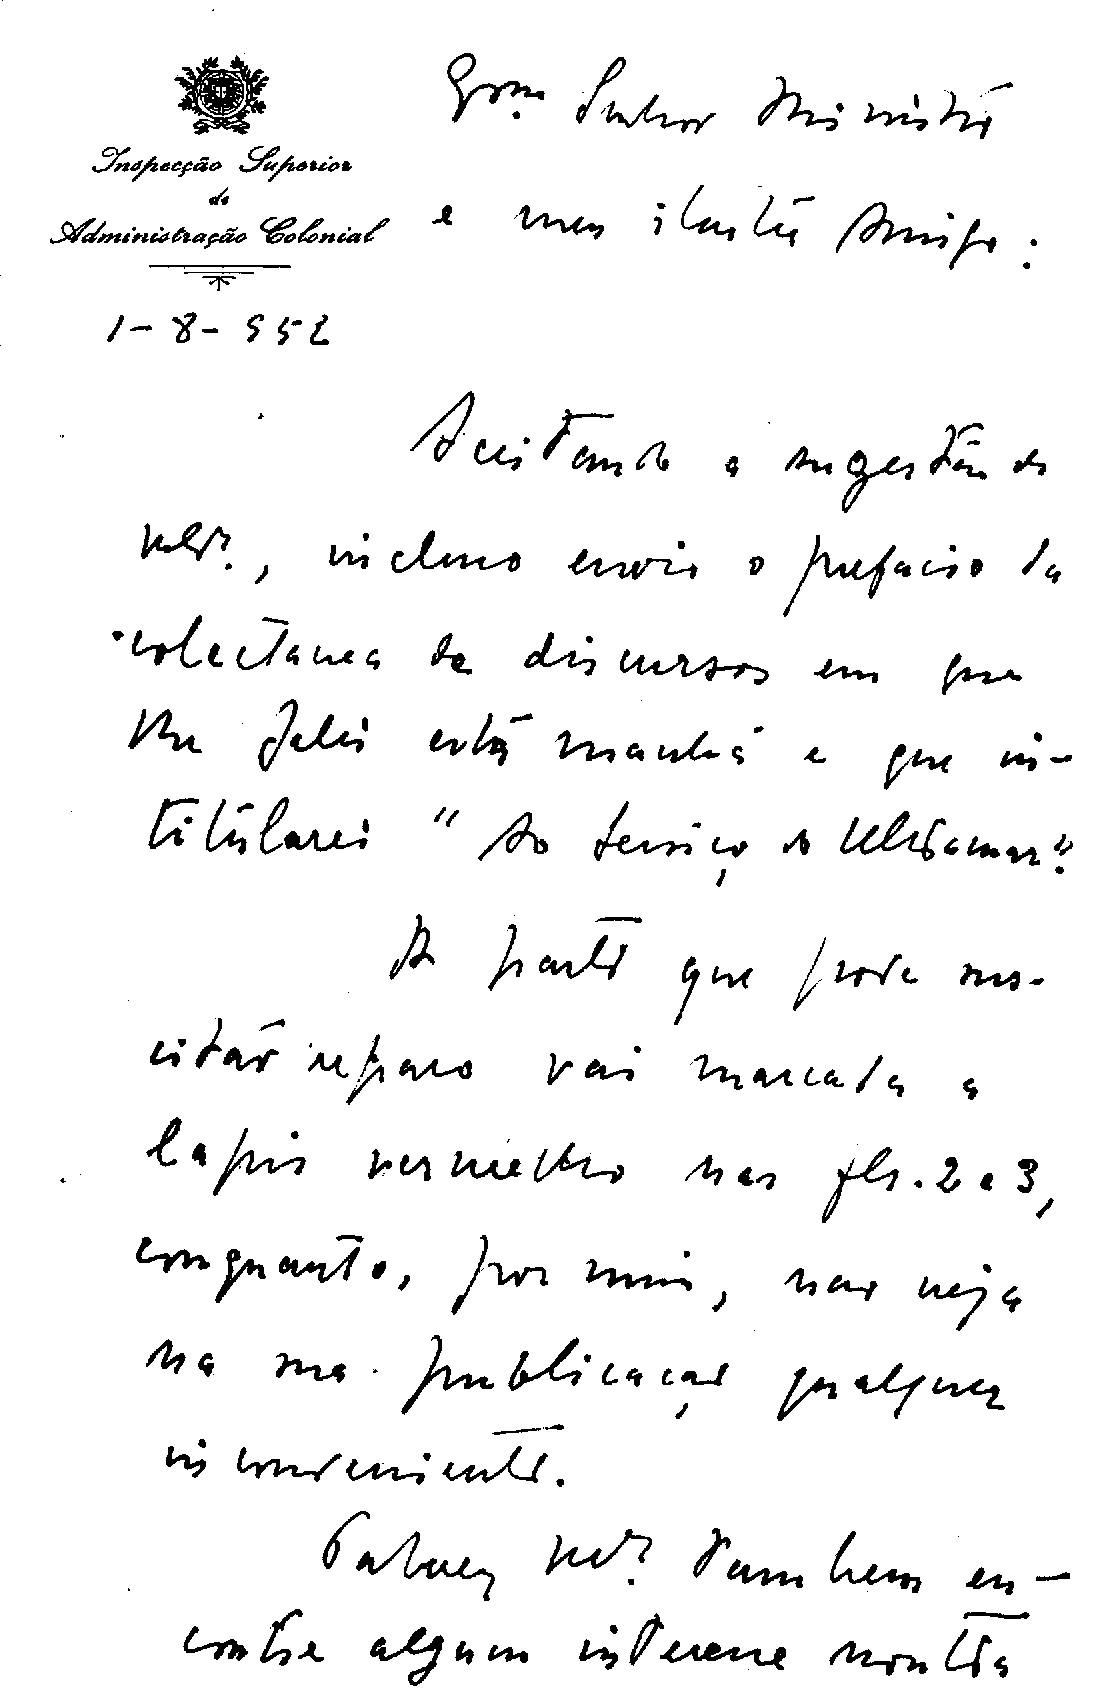 Inspecção Superior
de
Administração Colonial
1-8-952
Exmo. Senhor Ministro
e meu ilustre Amigo:
Aceitando a sugestão de
V. Exª., incluso envio o prefacio da
colectanea de discursos em que
lhe falei esta manhã e que in-
titularei "Ao Serviço do Ultramar".
A parte que pode sus-
citar reparo vai marcada a
lapis vermelho nas fls. 2 e 3,
conquanto, por mim, não veja
na sua publicação qualquer
inconveniente.
Talvez V. Exª. tambem en-
contre algum interesse noutra